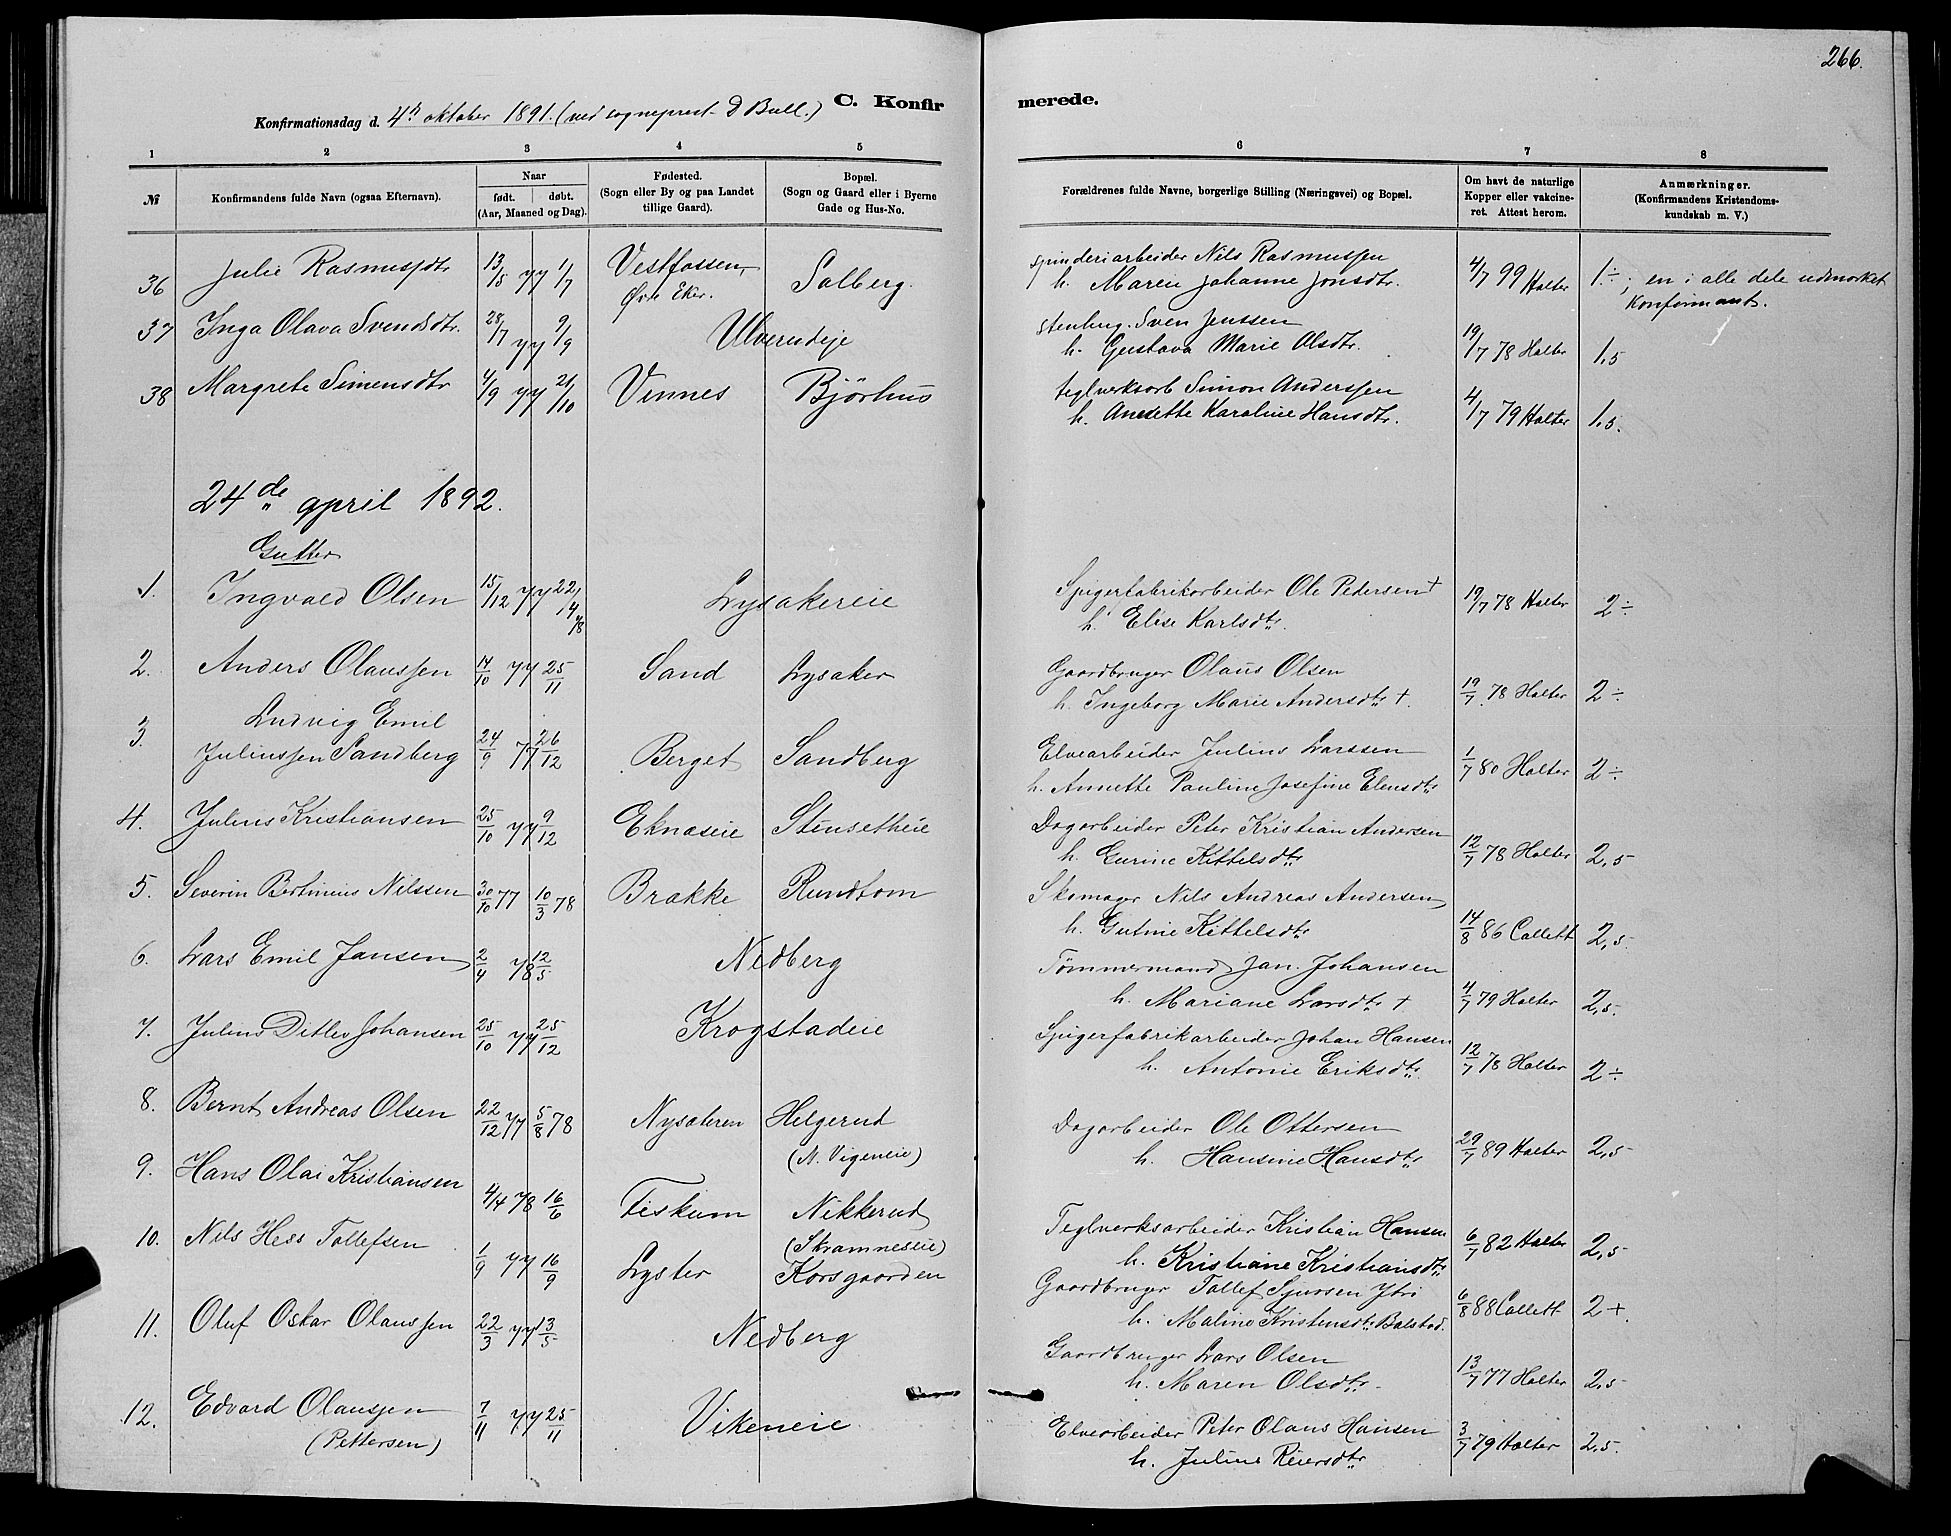 266.
Konfirmationsdag d. 4de oktober 1891. (ved sogneprest D Bull.) C. Konfir merede.
1 2 3 4 5 6 7 8
№ Konfirmandens fulde Navn (ogsaa Efternavn). Naar født. døbt. (Aar, Maaned og Dag). Fødested. (Sogn eller By og paa Landet tillige Gaard). Bopæl. (Sogn og Gaard eller i Byerne Gade og Hus-No. Forældrenes fulde Navne, borgerlige Stilling (Næringsvei) og Bopæl. Om havt de naturlige Kopper eller vakcineret. Attest herom. Anmærkninger. (Konfirmandens Kristendomskundskab m. V.)
36 Julie Rasmusdtr 13/5 77 1/7 Vestfossen, Øvr Eker. Solberg. Spinderiarbeider Nils Rasmussen 4/7 99 Halter 1÷; en i alle dele udmærket
h. Maren Johanne Jonsdtr. Konfirmant.
37 Inga Olava Svendsdtr. 28/7 77 9/9 Ulverudeje Stenhug. Sven Jenssen
h. Gustava Marie Olsdtr. 19/7 78 Halter 1,5
38 Margrete Simensdtr 4/9 77 21/10 Vinnes Bjørhus teglverksarb Simon Anderssen
h. Annette Karoline Hansdtr. 4/7 79 Halter 1,5.
24de april 1892.
Gutter
1. Ingvald Olsen 15/12 77 22/4 78 Lysakereie Spigerfabrikarbeider Ole Pedersen +
h. Elise Karlsdtr. 19/7 78 Halter 2÷
2. Anders Olaussen 14/10 77 25/11 Sand Lysaker Gaardbruger Olaus Olsen
h. Ingeborg Marie Andersdtr +. 19/7 78 Halter 2÷
3. Ludvig Emil
Juliussen Sandberg 24/9 77 26/12 Berget Sandberg Elvearbeider Julius Larssen
h. Annette Pauline Josefine Elensdtr 1/7 80 Halter 2÷
4. Julius Kristiansen 25/10 77 9/12 Eknæseie Stensetheie Dagarbeider Peter Kristian Andersen
h. Gurine Kittelsdtr 12/7 78 Halter 2,5
5. Severin Bertinius Nilssen 30/10 77 10/3 78 Brække Rundtom Skomager Nils Andreas Andersen
h. Gutine Kittelsdtr 14/8 86 Collett 2,5.
6. Lars Emil Jansen 2/4 78 12/5 Nedberg Tömmermand Jan Johansen
h. Mariane Larsdtr + 4/7 79 Halter 2,5.
7. Julius Ditlev Johansen 25/10 77 25/12 Krogstadeie Spigerfabrikarbeider Johan Hansen
h. Antonie Eriksdtr. 12/7 78 Halter 2÷
8. Bernt Andreas Olsen 22/12 77 5/8 78 Nysæteren Helgerud
(N. Vegeneie) Dagarbeider Ole Ottersen
h. Hansine Hansdtr 29/7 89 Halter 2,5
9. Hans Olai Kristiansen 4/4 78 16/6 Fiskum Nikkerud
(Skramneseie) Teglverksarbeider Kristian Hansen
h. Kristiane Kristiansdtr. 6/7 82 Halter 2,5
10. Nils Hess Tollefsen 1/9 77 16/9 Lyster Korsgaarden Gaardbruger Tollef Sjursen Ytri
h. Malino Kristensdtr Balstad. 6/8 88 Collett 2+.
11. Oluf Oskar Olaussen 22/3 77 13/5 Nedberg Gaardbruger Lars Olsen
h. Maren Olsdtr. 13/7 77 Halter 2,5
12. Edvard Olaussen
(Pettersen) 7/11 77 25/11 Vikeneie Elvearbeider Peter Olaus Hansen
h. Juline Reiersdtr 3/7 79 Halter 2,5.